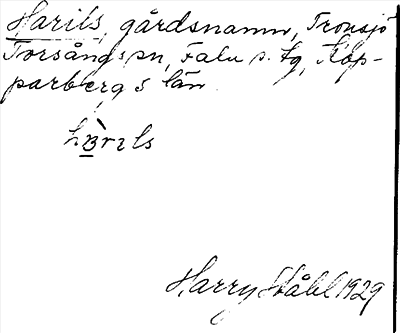 Harils, gårdsnamn, Tronsjö
Torsångs sn, Falu s. tg, Kop-
parbergs län
hàrils
Harry Ståhl 1929